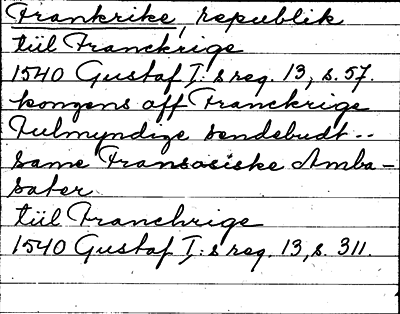 Frankrike, republik
tiil Franckrige
1540 Gustaf I:s reg. 13, s. 57.
kongens aff Franckrige
Fulmyndige sendebudt --
same Fransosiske Amba-
sater
tiil Franchrige
1540 Gustaf I:s reg. 13, s. 311.